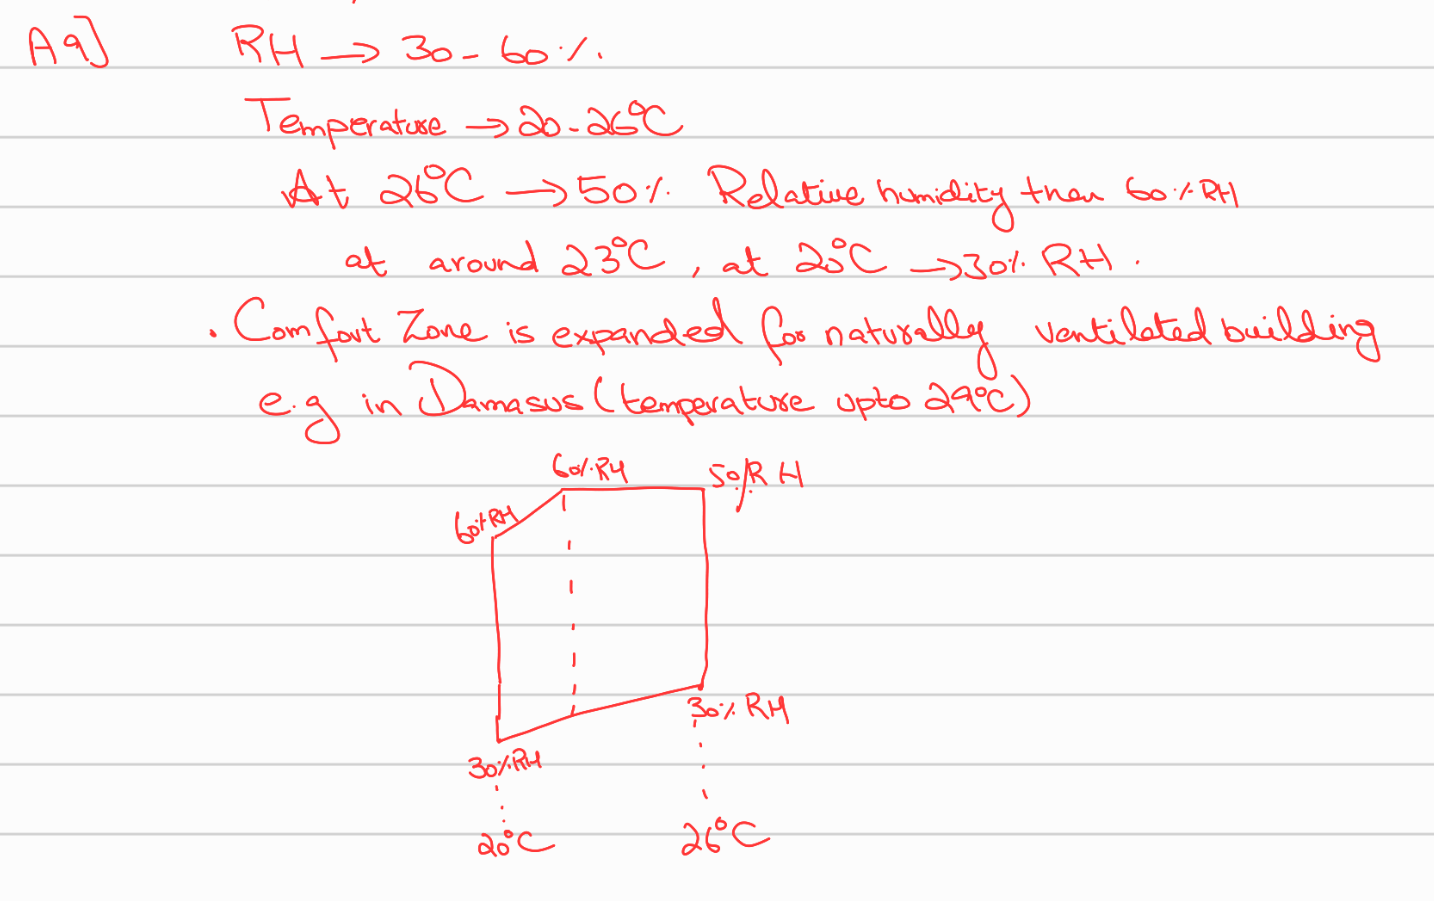 A9]
RH → 30-60%.
Temperature → 20-26°C
At 26°C → 50% Relative humidity then 60% RH
at around 23°C, at 20°C → 30% RH.
. Comfort Zone is expanded for naturally ventilated building
e.g in Damasus (temperature upto 29°C)
60% RH
50% RH
60% RH
30% RH
30% RH
20°C
26°C